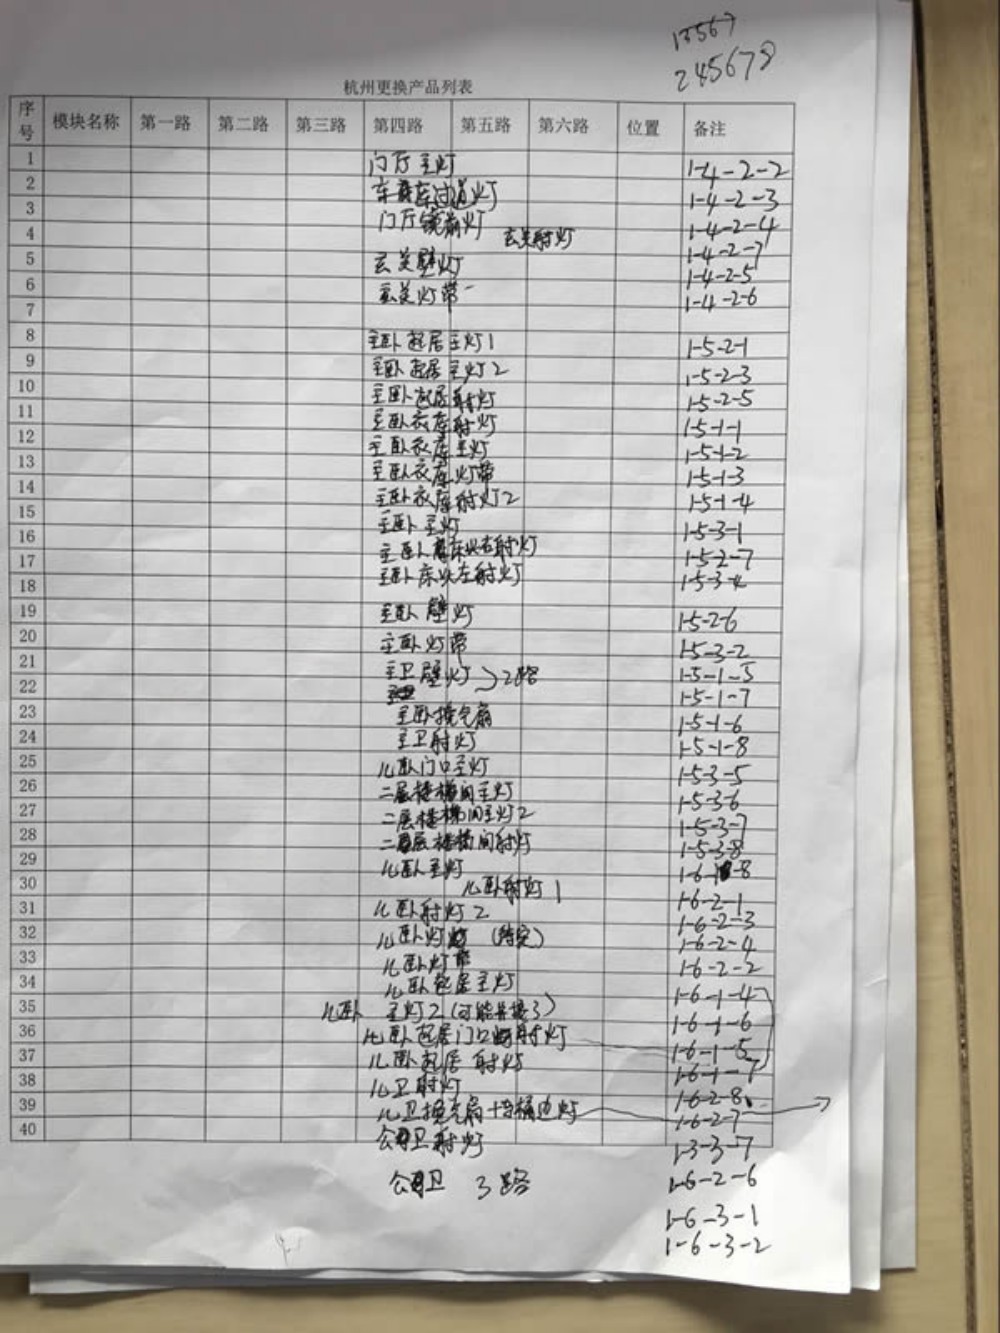 13567
245678
杭州更换产品列表
序号 模块名称 第一路 第二路 第三路 第四路 第五路 第六路 位置 备注
1 门厅主灯 1-4-2-2
2 车库过道灯 1-4-2-3
3 门厅镜前灯 1-4-2-4
4 玄关射灯 1-4-2-7
5 玄关壁灯 1-4-2-5
6 玄关灯带 1-4-2-6
7
8 主卧起居主灯1 1-5-2-1
9 主卧起居主灯2 1-5-2-3
10 主卧起居射灯 1-5-2-5
11 主卧衣库射灯 1-5-1-1
12 主卧衣库主灯 1-5-1-2
13 主卧衣库灯带 1-5-1-3
14 主卧衣库射灯2 1-5-1-4
15 主卧主灯 1-5-3-1
16 主卧床头右射灯 1-5-2-7
17 主卧床头左射灯 1-5-3-4
18
19 主卧壁灯 1-5-2-6
20 主卧灯带 1-5-3-2
21 主卫壁灯 2路 1-5-1-5
22 1-5-1-7
23 主卧换气扇 1-5-1-6
24 主卫射灯 1-5-1-8
25 儿卧门口主灯 1-5-3-5
26 二层楼梯间主灯 1-5-3-6
27 二层楼梯间主灯2 1-5-3-7
28 二层楼梯间射灯 1-5-3-8
29 儿卧主灯 1-6-1-8
30 儿卧射灯1 1-6-2-1
31 儿卧射灯2 1-6-2-3
32 儿卧灯 (待定) 1-6-2-4
33 儿卧灯带 1-6-2-2
34 儿卧起居主灯 1-6-1-4
35 儿卧 主灯2(可能并接了) 1-6-1-6
36 儿卧起居门口射灯 1-6-1-5
37 儿卧起居射灯 1-6-1-7
38 儿卫射灯 1-6-2-8
39 儿卫换气扇+马桶边灯 1-6-2-7
40 公卫射灯 1-3-3-7
公卫 3路 1-6-2-6
1-6-3-1
1-6-3-2